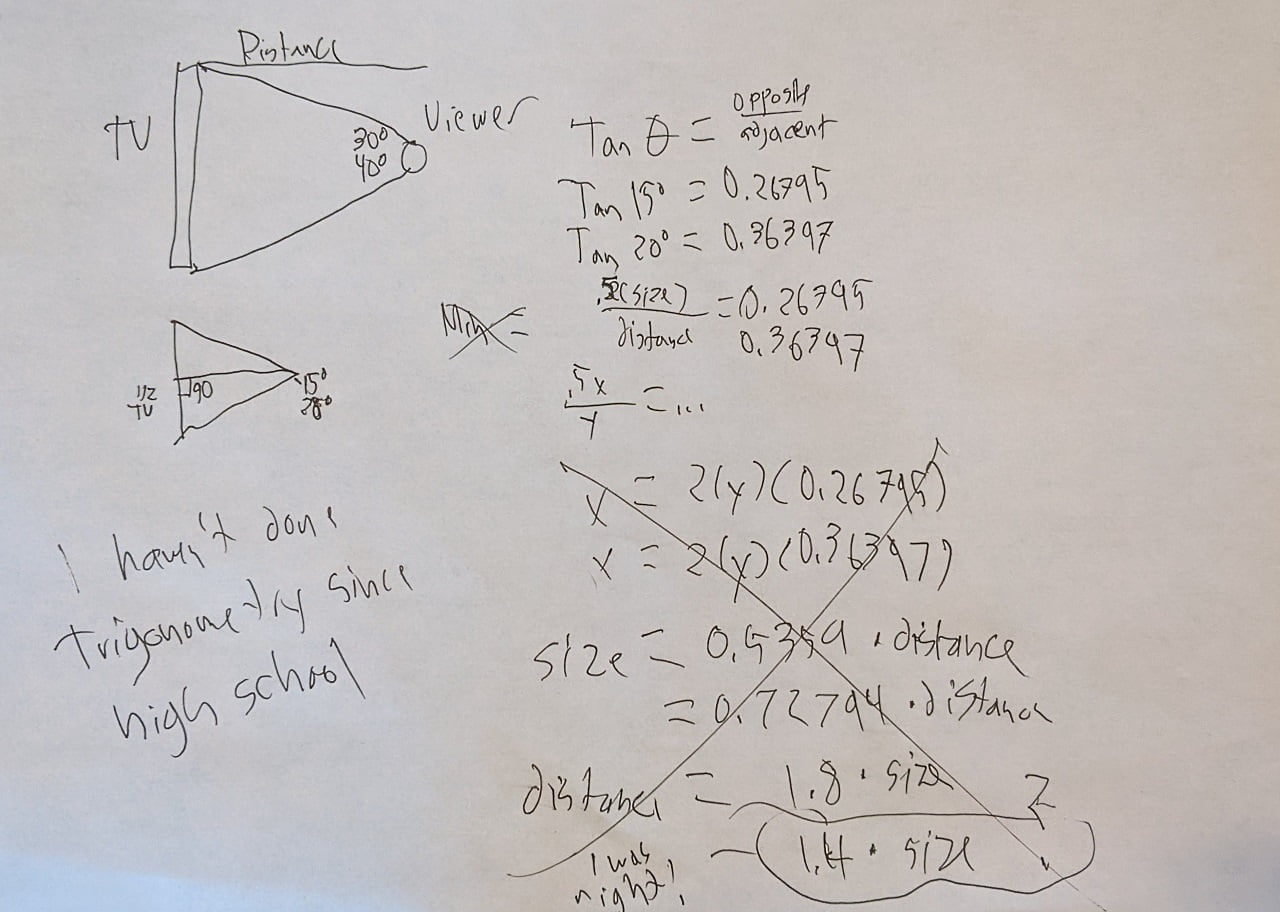 Distance
TV
30°
40°
Viewer
1/2
TV
90
15°
20°
I haven't done
trigonometry since
high school
Tan θ = opposite
adjacent
Tan 15° = 0.26795
Tan 20° = 0.36397
Min =
.5(size) = 0.26795
distance 0.36397
.5x = ...
y
x = 2(y)(0.26795)
x = 2(y)(0.36397)
size = 0.5359 · distance
= 0.72794 · distance
distance = 1.8 · size
= 1.4 · size
I was
right!